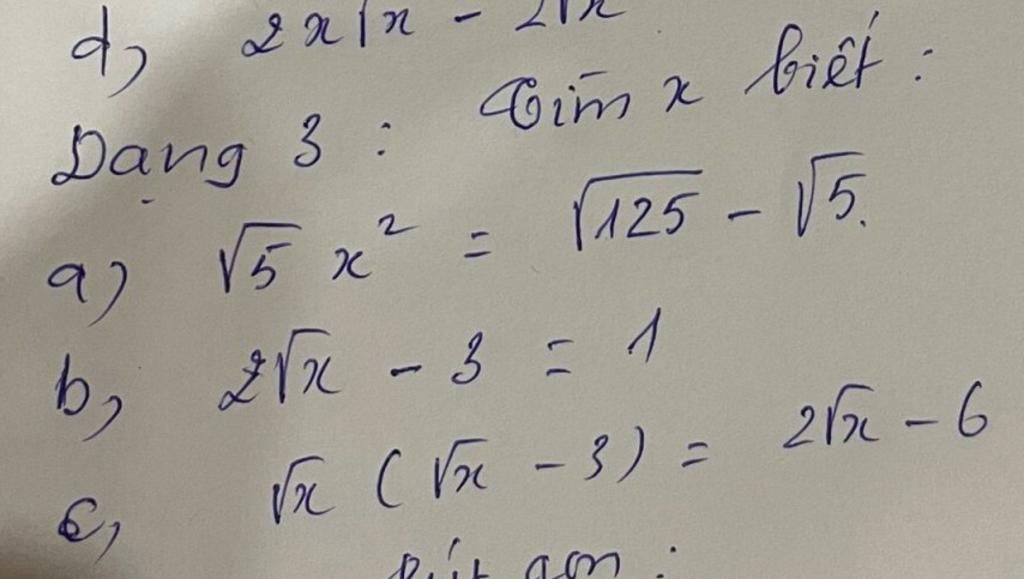 d, 2x√x - 2√x
Dạng 3 : Tìm x biết :
a) √5 x² = √125 - √5.
b, 2√x - 3 = 1
c, √x ( √x - 3 ) = 2√x - 6
Rút gọn :